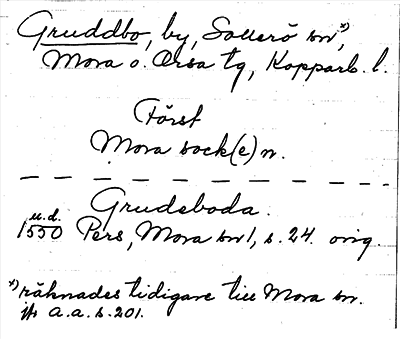 Gruddbo, by, Sollerö sn*),
Mora o. Orsa tg, Kopparb. l.
Först
Mora sock(e)n.
Grudeboda.
u.d.
1550 Pers, Mora sn 1, s. 24. orig.
*) räknades tidigare till Mora sn.
jfr a.a.s.201.